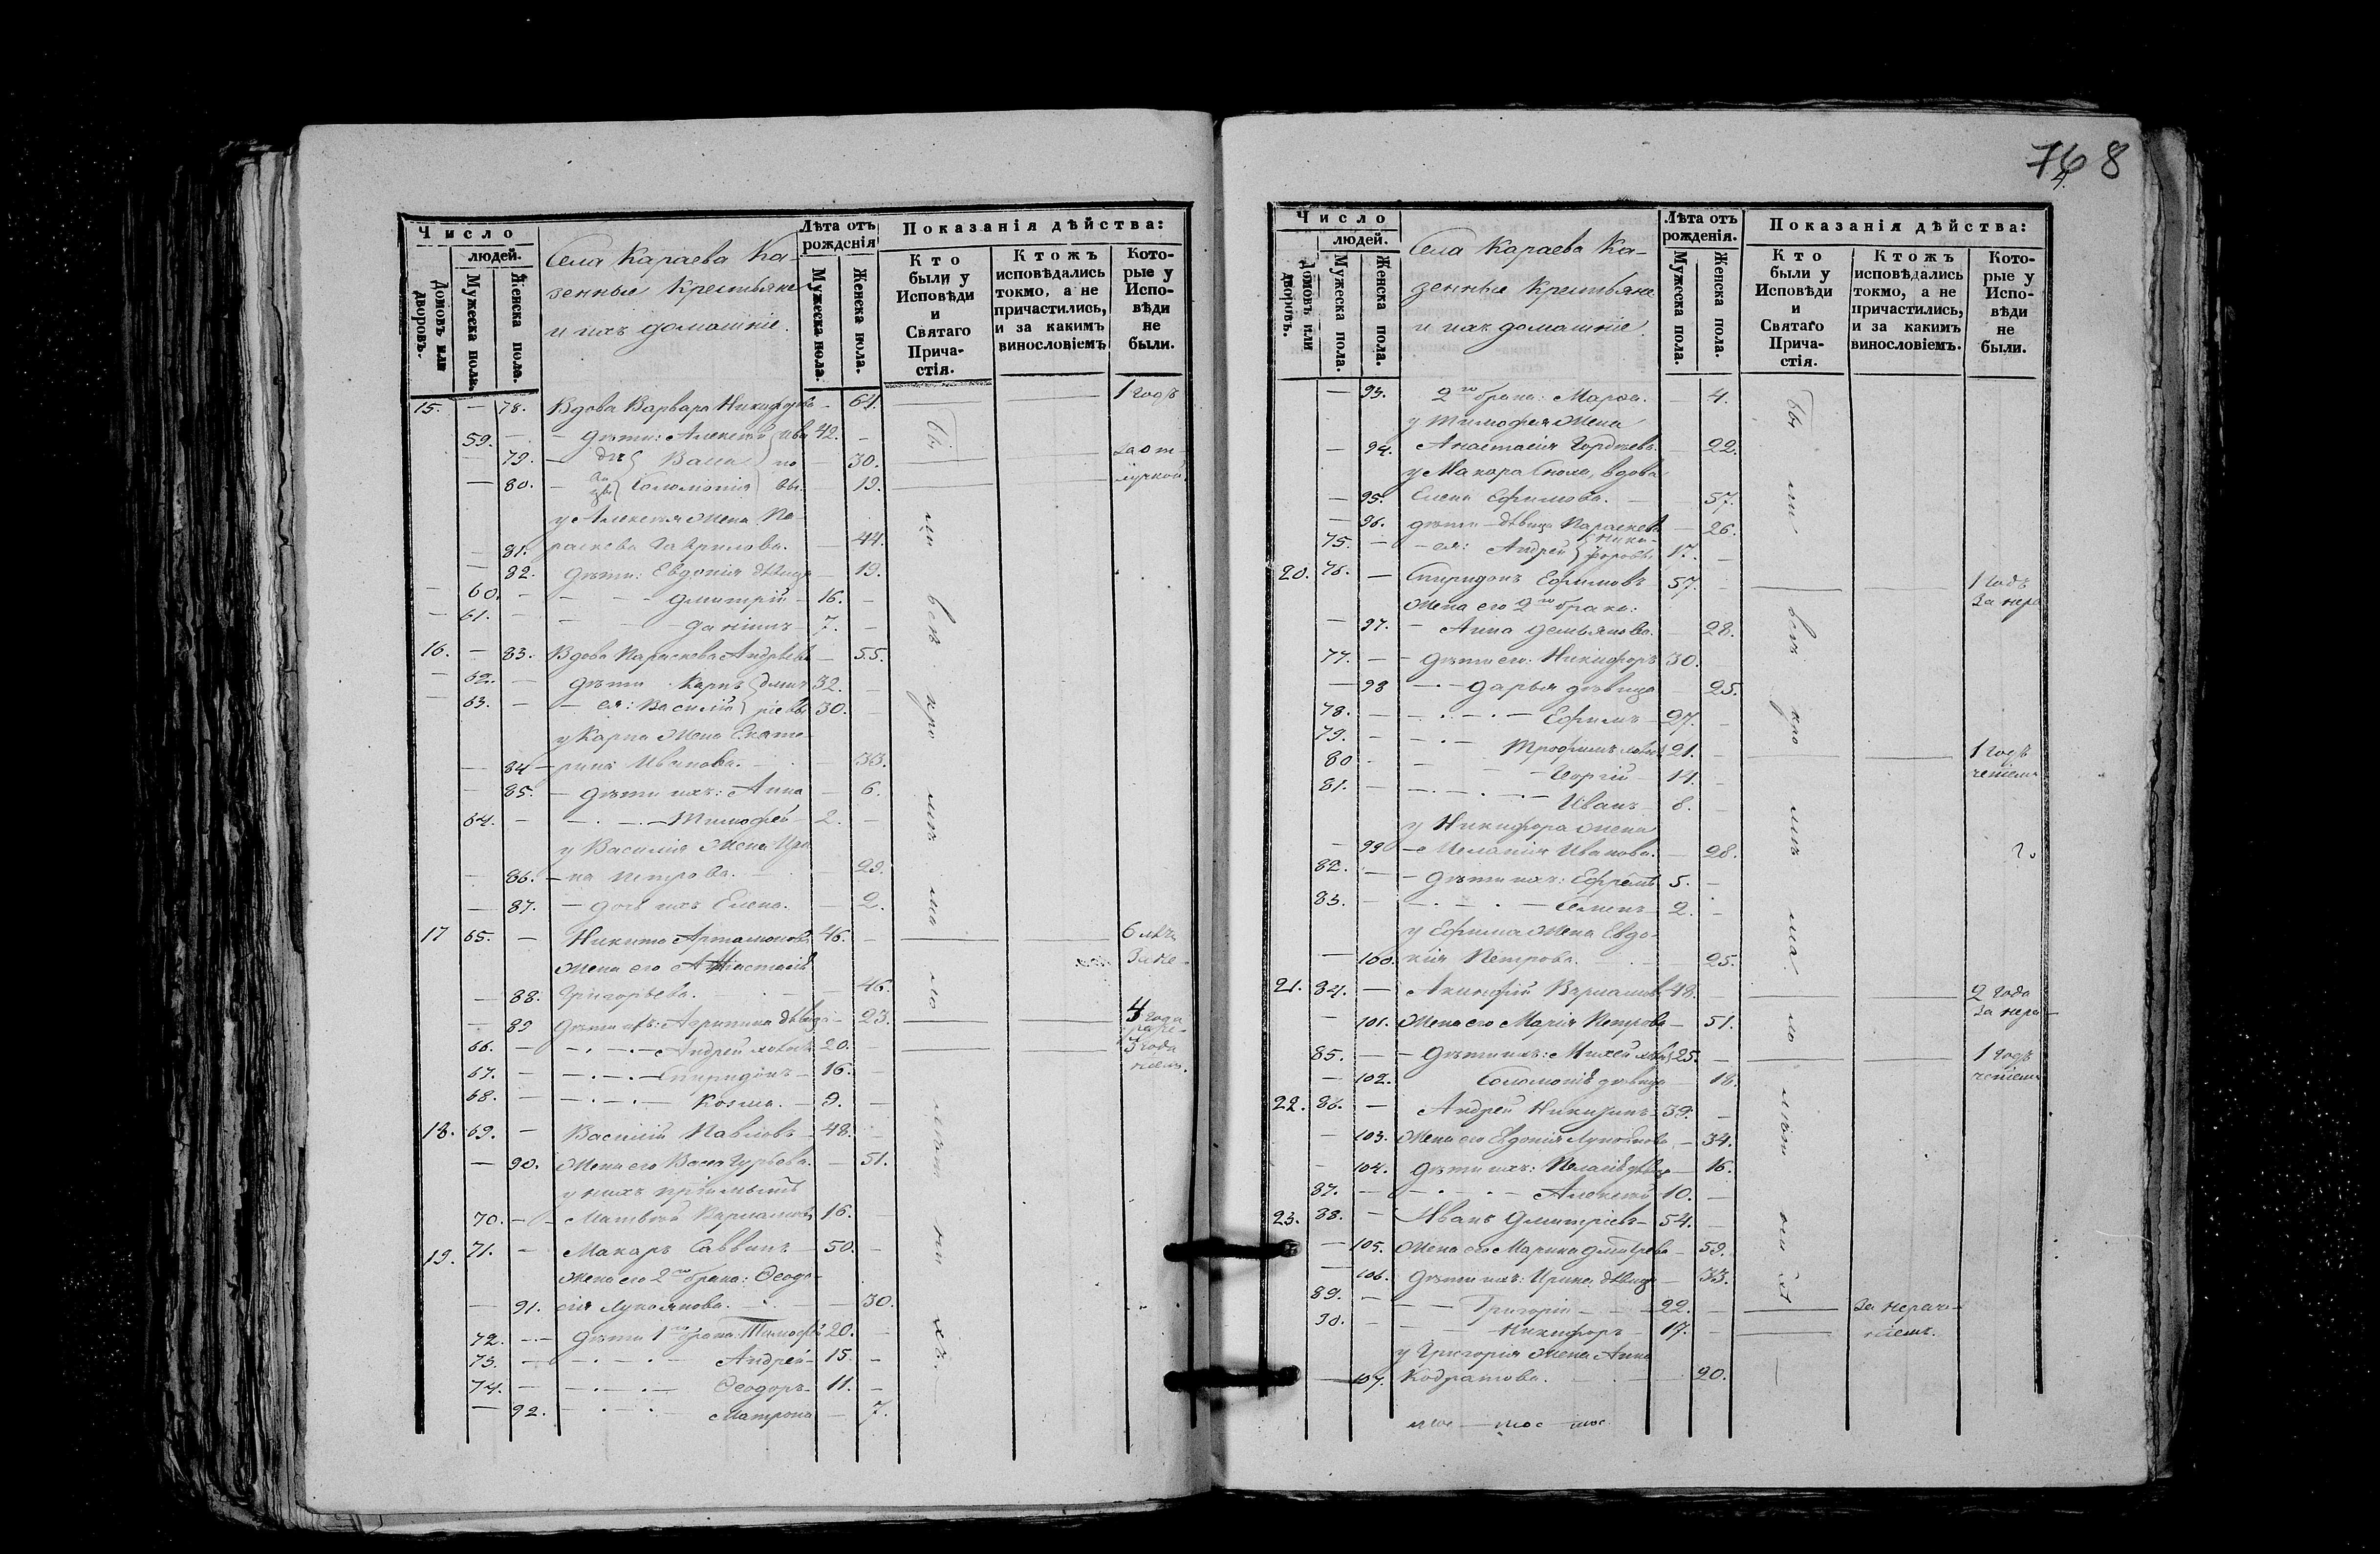 Число
людей.
Домовъ или дворовъ.
Мужеска пола.
Женска пола.
Села Караева Ка-
зенные крестьяне
и ихъ домашніе.
Лѣта отъ рожденія
Мужеска пола.
Женска пола.
Показанія дѣйства:
Кто были у Исповѣди и Святаго Прича-стія.
Ктожъ исповѣдались токмо, а не причастились, и за какимъ винословіемъ
Кото-рые у Испо-вѣди не были.
15. — 78. Вдова Варвара Никифорова — 61. 1 годъ
59. — дѣти: Алексѣй Ива 42. —
— 79. — Васса но — 30. за от-
— 80. — Соломонія вы. — 19. лучкой.
у Алексѣя жена Па-
— 81. раскева Гаврилова. — 44.
— 82. дѣти: Евдокія дѣвица — 19.
— 60. — Дмитрій 16. —
— 61. — Даніилъ 7. —
16. — 83. Вдова Параскева Андреева — 55.
— 62. — дѣти Карпъ Дмит 32. —
— 63. — ея: Василій ріевы 30. —
у Карпа жена Екате-
— 84 — рина Иванова. — 33.
— 85. — дѣти ихъ: Анна — 6.
64. — Тимофей 2. —
у Василія жена Ири-
— 86. — на Петрова. — 29.
— 87. — дочь ихъ Елена. — 2.
17 65. — Никита Артамоновъ 46. — 6 лѣтъ
жена его Анастасія За не-
— 88. Григорьева. — 46.
— 89 дѣти ихъ: Агрипина дѣвица — 23. 4 года раче-
66. — Андрей холостъ 20. — 3 года
67. — Спиридонъ 16. — ніем.
68. — Козма. 9. —
18. 69. — Василій Павловъ 48. —
— 90. жена его Васса Гурьева. — 51.
у нихъ пріемышъ
70. — Матвей Варламовъ 16. —
19. 71. — Макаръ Саввинъ 50. —
жена его 2го брака: Ѳеодо-
— 91. сія Лукоянова. — 30.
72. — дѣти 1го брака: Тимофей 20. —
73. — Андрей 15. —
74. — Ѳеодоръ 11. —
— 92. Матрона — 7.
бы ли всѣ кро мѣ ма ло лѣт ни хъ.
768
4.
Число
людей.
Домовъ или дворовъ.
Мужеска пола.
Женска пола.
Села Караева Ка-
зенные крестьяне
и ихъ домашніе.
Лѣта отъ рожденія.
Мужеска пола.
Женска пола.
Показанія дѣйства:
Кто были у Исповѣди и Святаго Прича-стія.
Ктожъ исповѣдались токмо, а не причастились, и за какимъ винословіемъ.
Кото-рые у Испо-вѣди не были.
— 93. 2го брака: Марѳа. — 4.
у Тимофея жена
— 94. Анастасія Гордѣева. — 22.
у Макара сноха, вдова
— 95. Елена Ефимова. — 57.
— 96. дѣти дѣвица Параскева — 26.
75. — ея: Андрей Ники-форовы 17. —
20. 76. — Спиридонъ Ефимовъ 57. — 1 годъ
жена его 2го брака: За нера
— 97. — Анна Демьянова. — 28.
77. — дѣти его: Никифоръ 30. —
— 98 — Дарья дѣвица — 25.
78. — Ефимъ 27. —
79. — Трофимъ холост 21. — 1 годъ
80 — Георгій 14. — ченіем
81. — Иванъ 8. —
у Никифора жена
— 99 — Меланія Иванова. — 28.
82. — дѣти ихъ: Ефремъ 5. —
83. — Семенъ 2. —
у Ефима жена Евдо-
— 100. кія Петрова. — 25.
21. 84. — Акинфій Варламовъ 48. — 2 года
— 101. жена его Марія Петрова — 51. За нера-
85. — дѣти ихъ: Михей холост 25. — 1 годъ
— 102. Соломонія дѣвица — 18. ченіем
22. 86. — Андрей Никитинъ 39. —
— 103. жена его Евдокія Лукоянова — 34.
— 104. дѣти ихъ: Пелагія дѣвица — 16.
87. — Алексѣй 10. —
23. 88. — Иванъ Дмитріевъ 54. —
— 105. жена его Марина Дмитріева — 59.
— 106. дѣти ихъ: Ирина дѣвица — 33.
89. — Григорій 22. — За нераче-
90. — Никифоръ 17. — ніемъ.
у Григорія жена Анна
— 107. Кодратова. — 20.
бы ли всѣ кро мѣ ма ло лѣт ни хъ